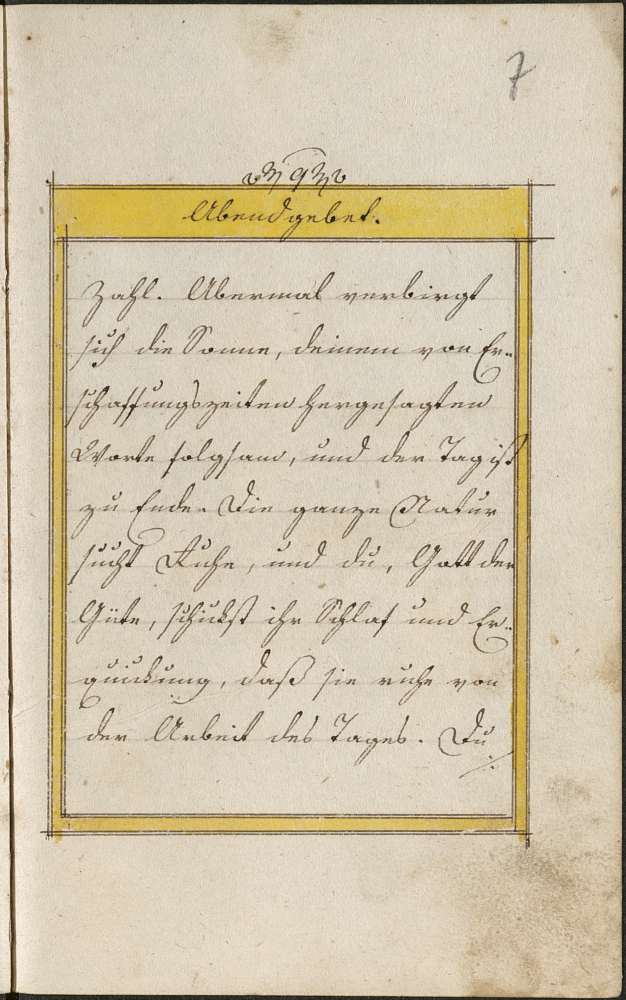 7
9
Abendgebet.
Zahl. Abermal verbirgt
sich die Sonne, deinem von Er-
schaffungszeiten hergesagten
Worte folgsam, und der Tag ist
zu Ende. Die ganze Natur
sucht Ruhe, und du, Gott der
Güte, schickst ihr Schlaf und Er-
quickung, daß sie ruhe von
der Arbeit des Tages. Du